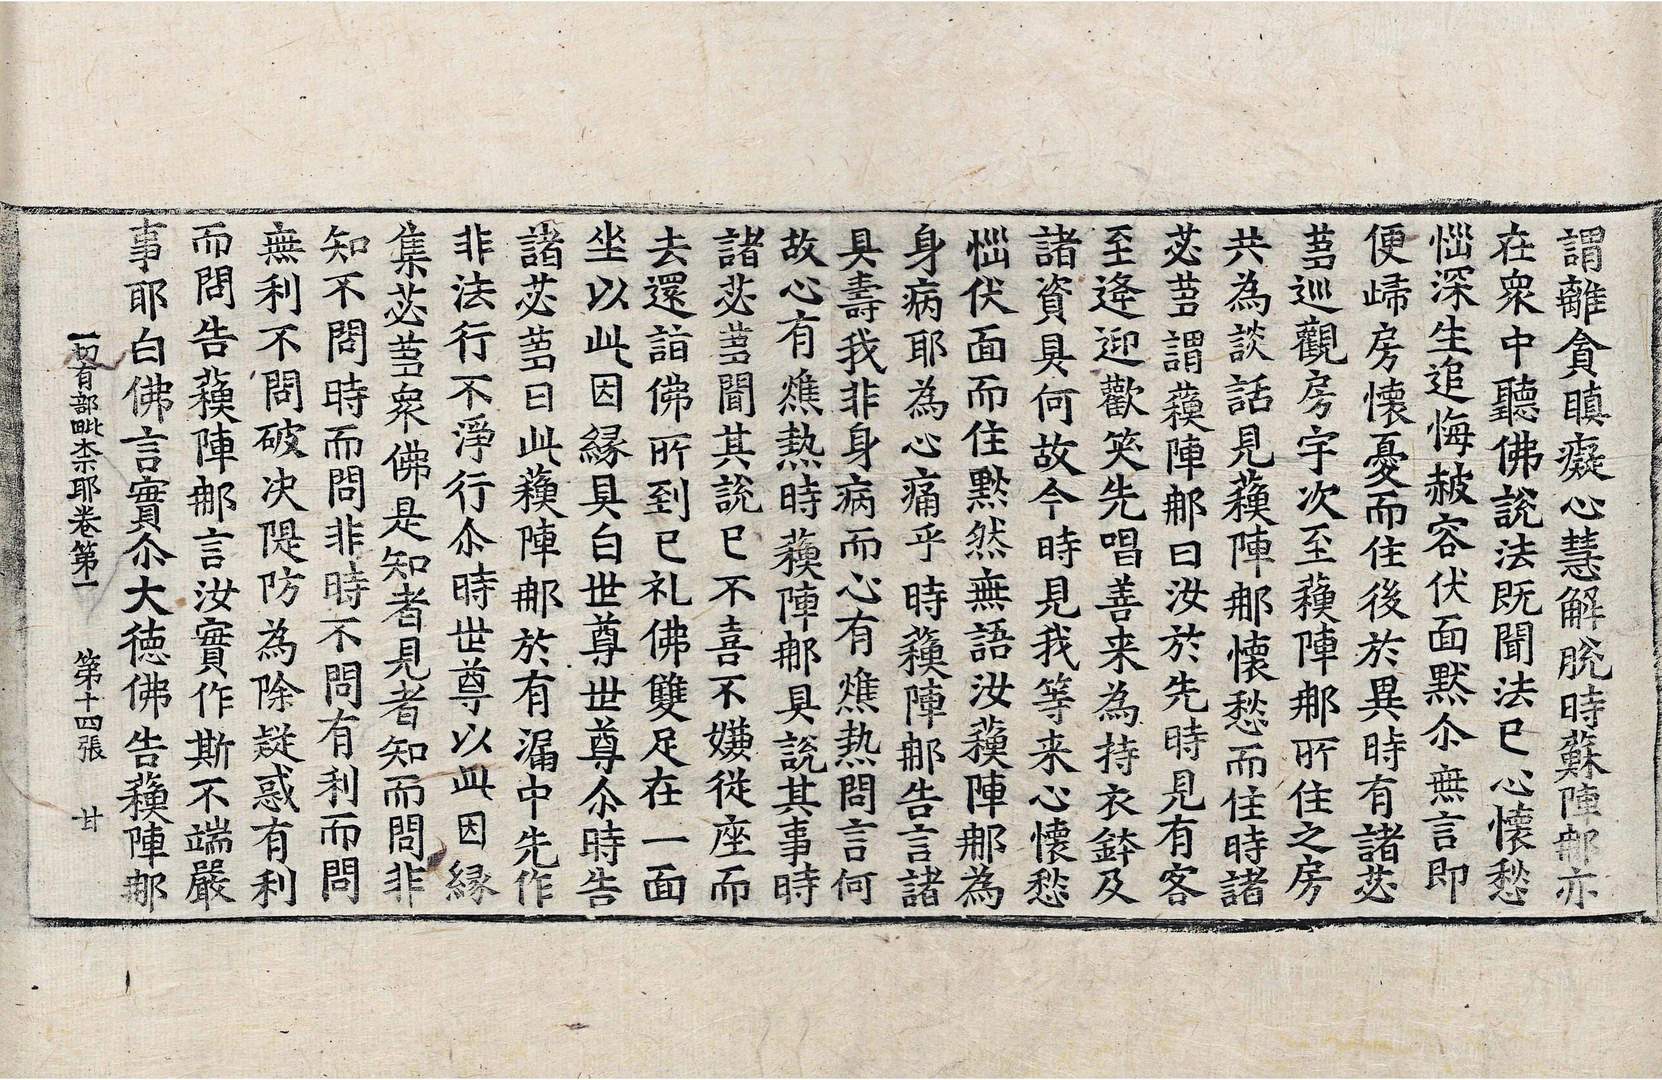 謂離貪瞋癡心慧解脫時蘇陣那亦
在衆中聽佛說法既聞法已心懷愁
惱深生追悔赧容伏面黙尒無言即
便歸房懷憂而住後於異時有諸苾
蒭巡觀房宇次至蘇陣那所住之房
共為談話見蘇陣那懷愁而住時諸
苾蒭謂蘇陣那曰汝於先時見有客
至逢迎歡笑先唱善来為持衣鉢及
諸資具何故今時見我等来心懷愁
惱伏面而住黙然無語汝蘇陣那為
身病耶為心痛乎時蘇陣那告言諸
具壽我非身病而心有燋熱問言何
故心有燋熱時蘇陣那具說其事時
諸苾蒭聞其說已不喜不嫌從座而
去還詣佛所到已礼佛雙足在一面
坐以此因縁具白世尊世尊尒時告
諸苾蒭曰此蘇陣那於有漏中先作
非法行不淨行尒時世尊以此因縁
集苾蒭衆佛是知者見者知而問非
知不問時而問非時不問有利而問
無利不問破決隄防為除疑惑有利
而問告蘇陣那言汝實作斯不端嚴
事耶白佛言實尒大徳佛告蘇陣那
一切有部毗柰耶卷第一 第十四張 甘